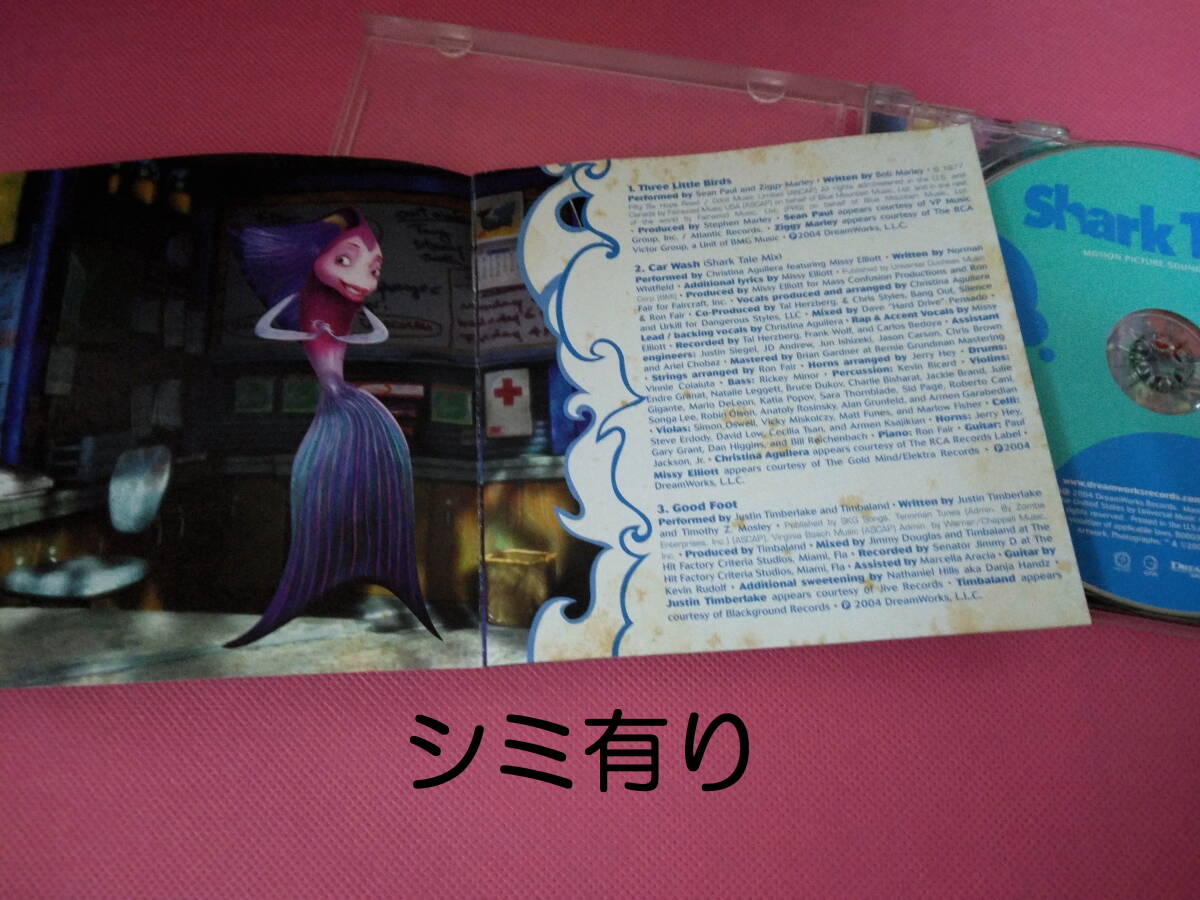 1. Three Little Birds
Performed by Sean Paul and Ziggy Marley • Written by Bob Marley • © 1977
Fifty Six Hope Road / Odnil Music Limited (ASCAP) All rights administered in the U.S. and
Canada by Fairwood Music USA (ASCAP) on behalf of Blue Mountain Music, Ltd. and in the rest
of the world by Fairwood Music, Ltd. (PRS) on behalf of Blue Mountain Music, Ltd.
• Produced by Stephen Marley • Sean Paul appears courtesy of VP Music
Group, Inc. / Atlantic Records. • Ziggy Marley appears courtesy of The RCA
Victor Group, a Unit of BMG Music • ℗2004 DreamWorks, L.L.C.
2. Car Wash (Shark Tale Mix)
Performed by Christina Aguilera featuring Missy Elliott • Written by Norman
Whitfield • Additional lyrics by Missy Elliott • Published by Universal Duchess Music
Corp (BMI) • Produced by Missy Elliott for Mass Confusion Productions and Ron
Fair for Faircraft, Inc. • Vocals produced and arranged by Christina Aguilera
& Ron Fair • Co-Produced by Tal Herzberg, & Chris Styles, Bang Out, Silence
and Urkill for Dangerous Styles, LLC • Mixed by Dave "Hard Drive" Pensado •
Lead / backing vocals by Christina Aguilera • Rap & Accent Vocals by Missy
Elliott • Recorded by Tal Herzberg, Frank Wolf, and Carlos Bedoya • Assistant
engineers: Justin Siegel, JD Andrew, Jun Ishizeki, Jason Carson, Chris Brown
and Ariel Chobaz • Mastered by Brian Gardner at Bernie Grundman Mastering
• Strings arranged by Ron Fair • Horns arranged by Jerry Hey • Drums:
Vinnie Colaiuta • Bass: Rickey Minor • Percussion: Kevin Ricard • Violins:
Endre Granat, Natalie Leggett, Bruce Dukov, Charlie Bisharat, Jackie Brand, Julie
Gigante, Mario DeLeon, Katia Popov, Sara Thornblade, Sid Page, Roberto Cani,
Songa Lee, Robin Olson, Anatoly Rosinsky, Alan Grunfeld, and Armen Garabedian
• Violas: Simon Oswell, Vicky Miskolczy, Matt Funes, and Marlow Fisher • Celli:
Steve Erdody, David Low, Cecilia Tsan, and Armen Ksajikian • Horns: Jerry Hey,
Gary Grant, Dan Higgins, and Bill Reichenbach • Piano: Ron Fair • Guitar: Paul
Jackson, Jr. • Christina Aguilera appears courtesy of The RCA Records Label •
Missy Elliott appears courtesy of The Gold Mind/Elektra Records • ℗2004
DreamWorks, L.L.C.
3. Good Foot
Performed by Justin Timberlake and Timbaland • Written by Justin Timberlake
and Timothy Z. Mosley • Published by BKG Songs, Tennman Tunes (Admin. By Zomba
Enterprises, Inc.) (ASCAP), Virginia Beach Music (ASCAP) Admin. by Warner/Chappell Music,
Inc. • Produced by Timbaland • Mixed by Jimmy Douglas and Timbaland at The
Hit Factory Criteria Studios, Miami, Fla • Recorded by Senator Jimmy D at The
Hit Factory Criteria Studios, Miami, Fla • Assisted by Marcella Araica • Guitar by
Kevin Rudolf • Additional sweetening by Nathaniel Hills aka Danja Handz •
Justin Timberlake appears courtesy of Jive Records • Timbaland appears
courtesy of Blackground Records • ℗ 2004 DreamWorks, L.L.C.
Shark T
MOTION PICTURE SOUN
www.dreamworksrecords.com
2004 DreamWorks Records.
シミ有り